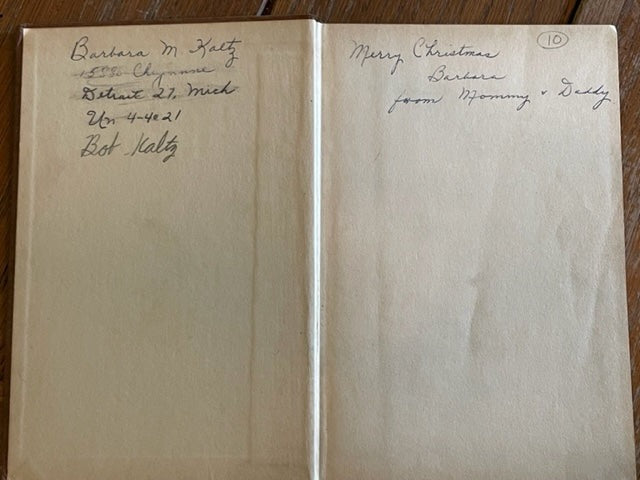 Barbara M Kaltz
Cheyenne
Detroit 27, Mich
Un 4-4021
Bob Kaltz
10
Merry Christmas
Barbara
from Mommy & Daddy